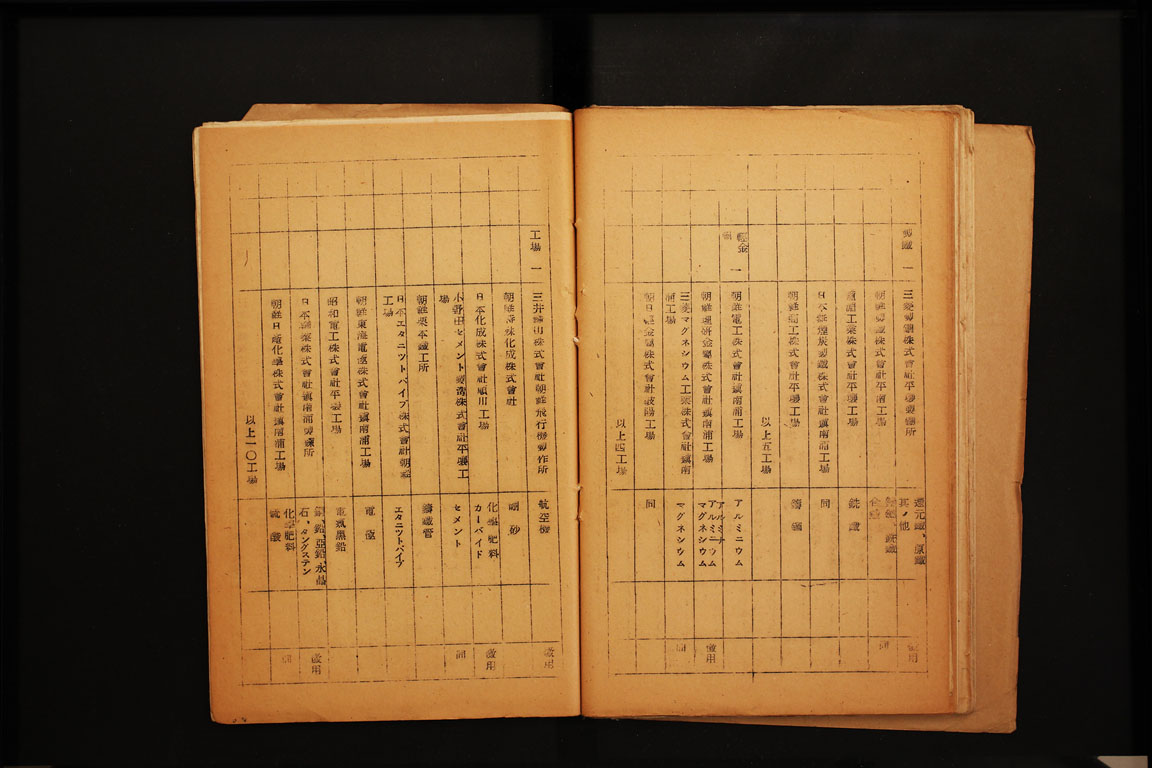 製鐵 一
三菱製鋼株式會社平壤製鋼所
還元鐵、原鐵
其ノ他
徴用
朝鮮製鐵株式會社平南工場
同
株式會社平壤工場
銑鐵
日本無煙炭製鐵株式會社鎭南浦工場
同
朝鮮商工株式會社平壤工場
鑄鋼
以上五工場
輕金
一
朝鮮電工株式會社鎭南浦工場
アルミニウム
朝鮮理研金屬株式會社鎭南浦工場
アルミナ
アルミニウム
マグネシウム
徴用
三菱マグネシウム工業株式會社鎭南
浦工場
マグネシウム
同
朝日輕金屬株式會社岐陽工場
同
以上四工場
工場 一
三井油脂株式會社朝鮮飛行機製作所
航空機
徴用
朝鮮特殊化成株式會社
硼砂
日本化成株式會社順川工場
化學肥料
カーバイド
徴用
小野田セメント製造株式會社平壤工
場
セメント
同
朝鮮栗本鐵工所
鑄鐵管
日本エタニツトパイプ株式會社朝鮮
工場
エタニツトパイプ
朝鮮東海電極株式會社鎭南浦工場
電極
昭和電工株式會社平壤工場
電氣黑鉛
日本鑛業株式會社鎭南浦製錬所
銅、鉛、亞鉛、水晶
石、タングステン
徴用
朝鮮日産化學株式會社鎭南浦工場
化學肥料
硫酸
同
以上一〇工場